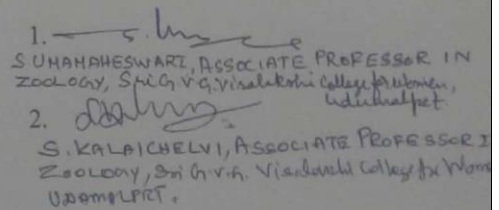 1.
SUMAMAHESWARI, ASSOCIATE PROFESSOR IN
ZOOLOGY, Sri G.V.G. Visalakshi College for Women,
Udumalpet.
2.
S. KALAICHELVI, ASSOCIATE PROFESSOR I
ZOOLOGY, Sri G.V.G. Visalakshi College for Wom
UDAMALPET.